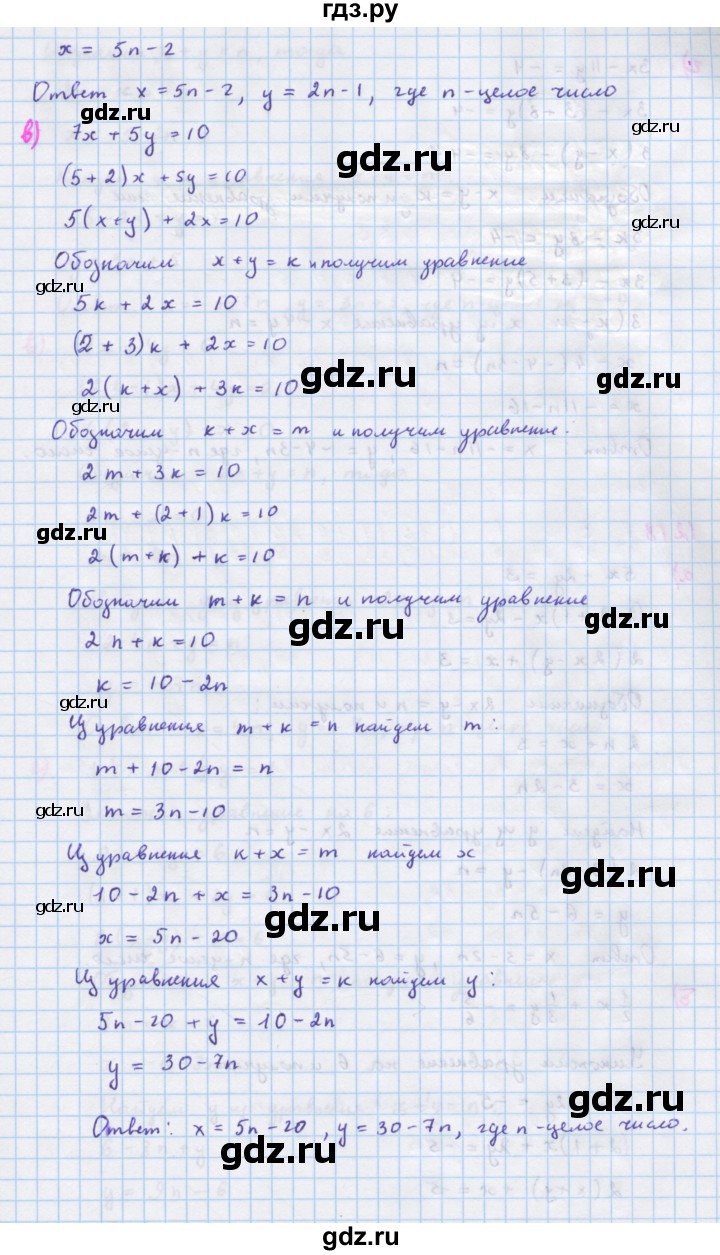 гдз.ру
x = 5n - 2
Ответ x = 5n - 2, y = 2n - 1, где n - целое число
gdz.ru
в) 7x + 5y = 10
gdz.ru
(5 + 2)x + 5y = 10
5(x + y) + 2x = 10
gdz.ru
Обозначим x + y = к и получим уравнение
gdz.ru
5к + 2x = 10
(2 + 3)к + 2x = 10
gdz.ru
gdz.ru
2(к + x) + 3к = 10
gdz.ru
Обозначим к + x = m и получим уравнение:
2m + 3к = 10
2m + (2 + 1)к = 10
gdz.ru
2(m + к) + к = 10
Обозначим m + к = n и получим уравнение
gdz.ru
gdz.ru
2n + к = 10
к = 10 - 2n
gdz.ru
Из уравнения m + к = n найдем m:
m + 10 - 2n = n
gdz.ru
m = 3n - 10
Из уравнения к + x = m найдем x
gdz.ru
10 - 2n + x = 3n - 10
gdz.ru
gdz.ru
x = 5n - 20
Из уравнения x + y = к найдем y:
5n - 20 + y = 10 - 2n
y = 30 - 7n
gdz.ru
Ответ: x = 5n - 20, y = 30 - 7n, где n - целое число.
gdz.ru
gdz.ru